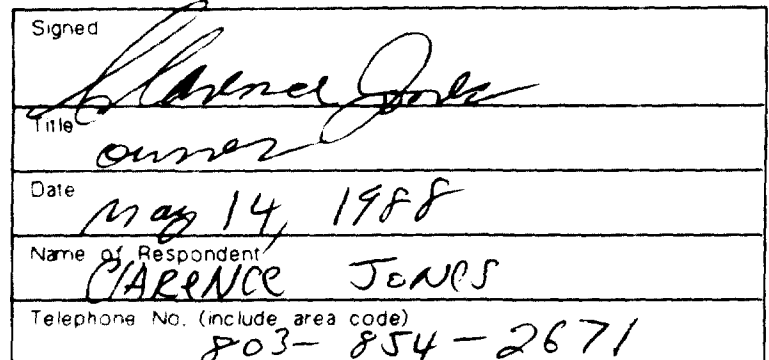 Signed
Clarence Jones
Title
owner
Date
May 14, 1988
Name of Respondent
CLARENCE JONES
Telephone No. (include area code)
803-854-2671